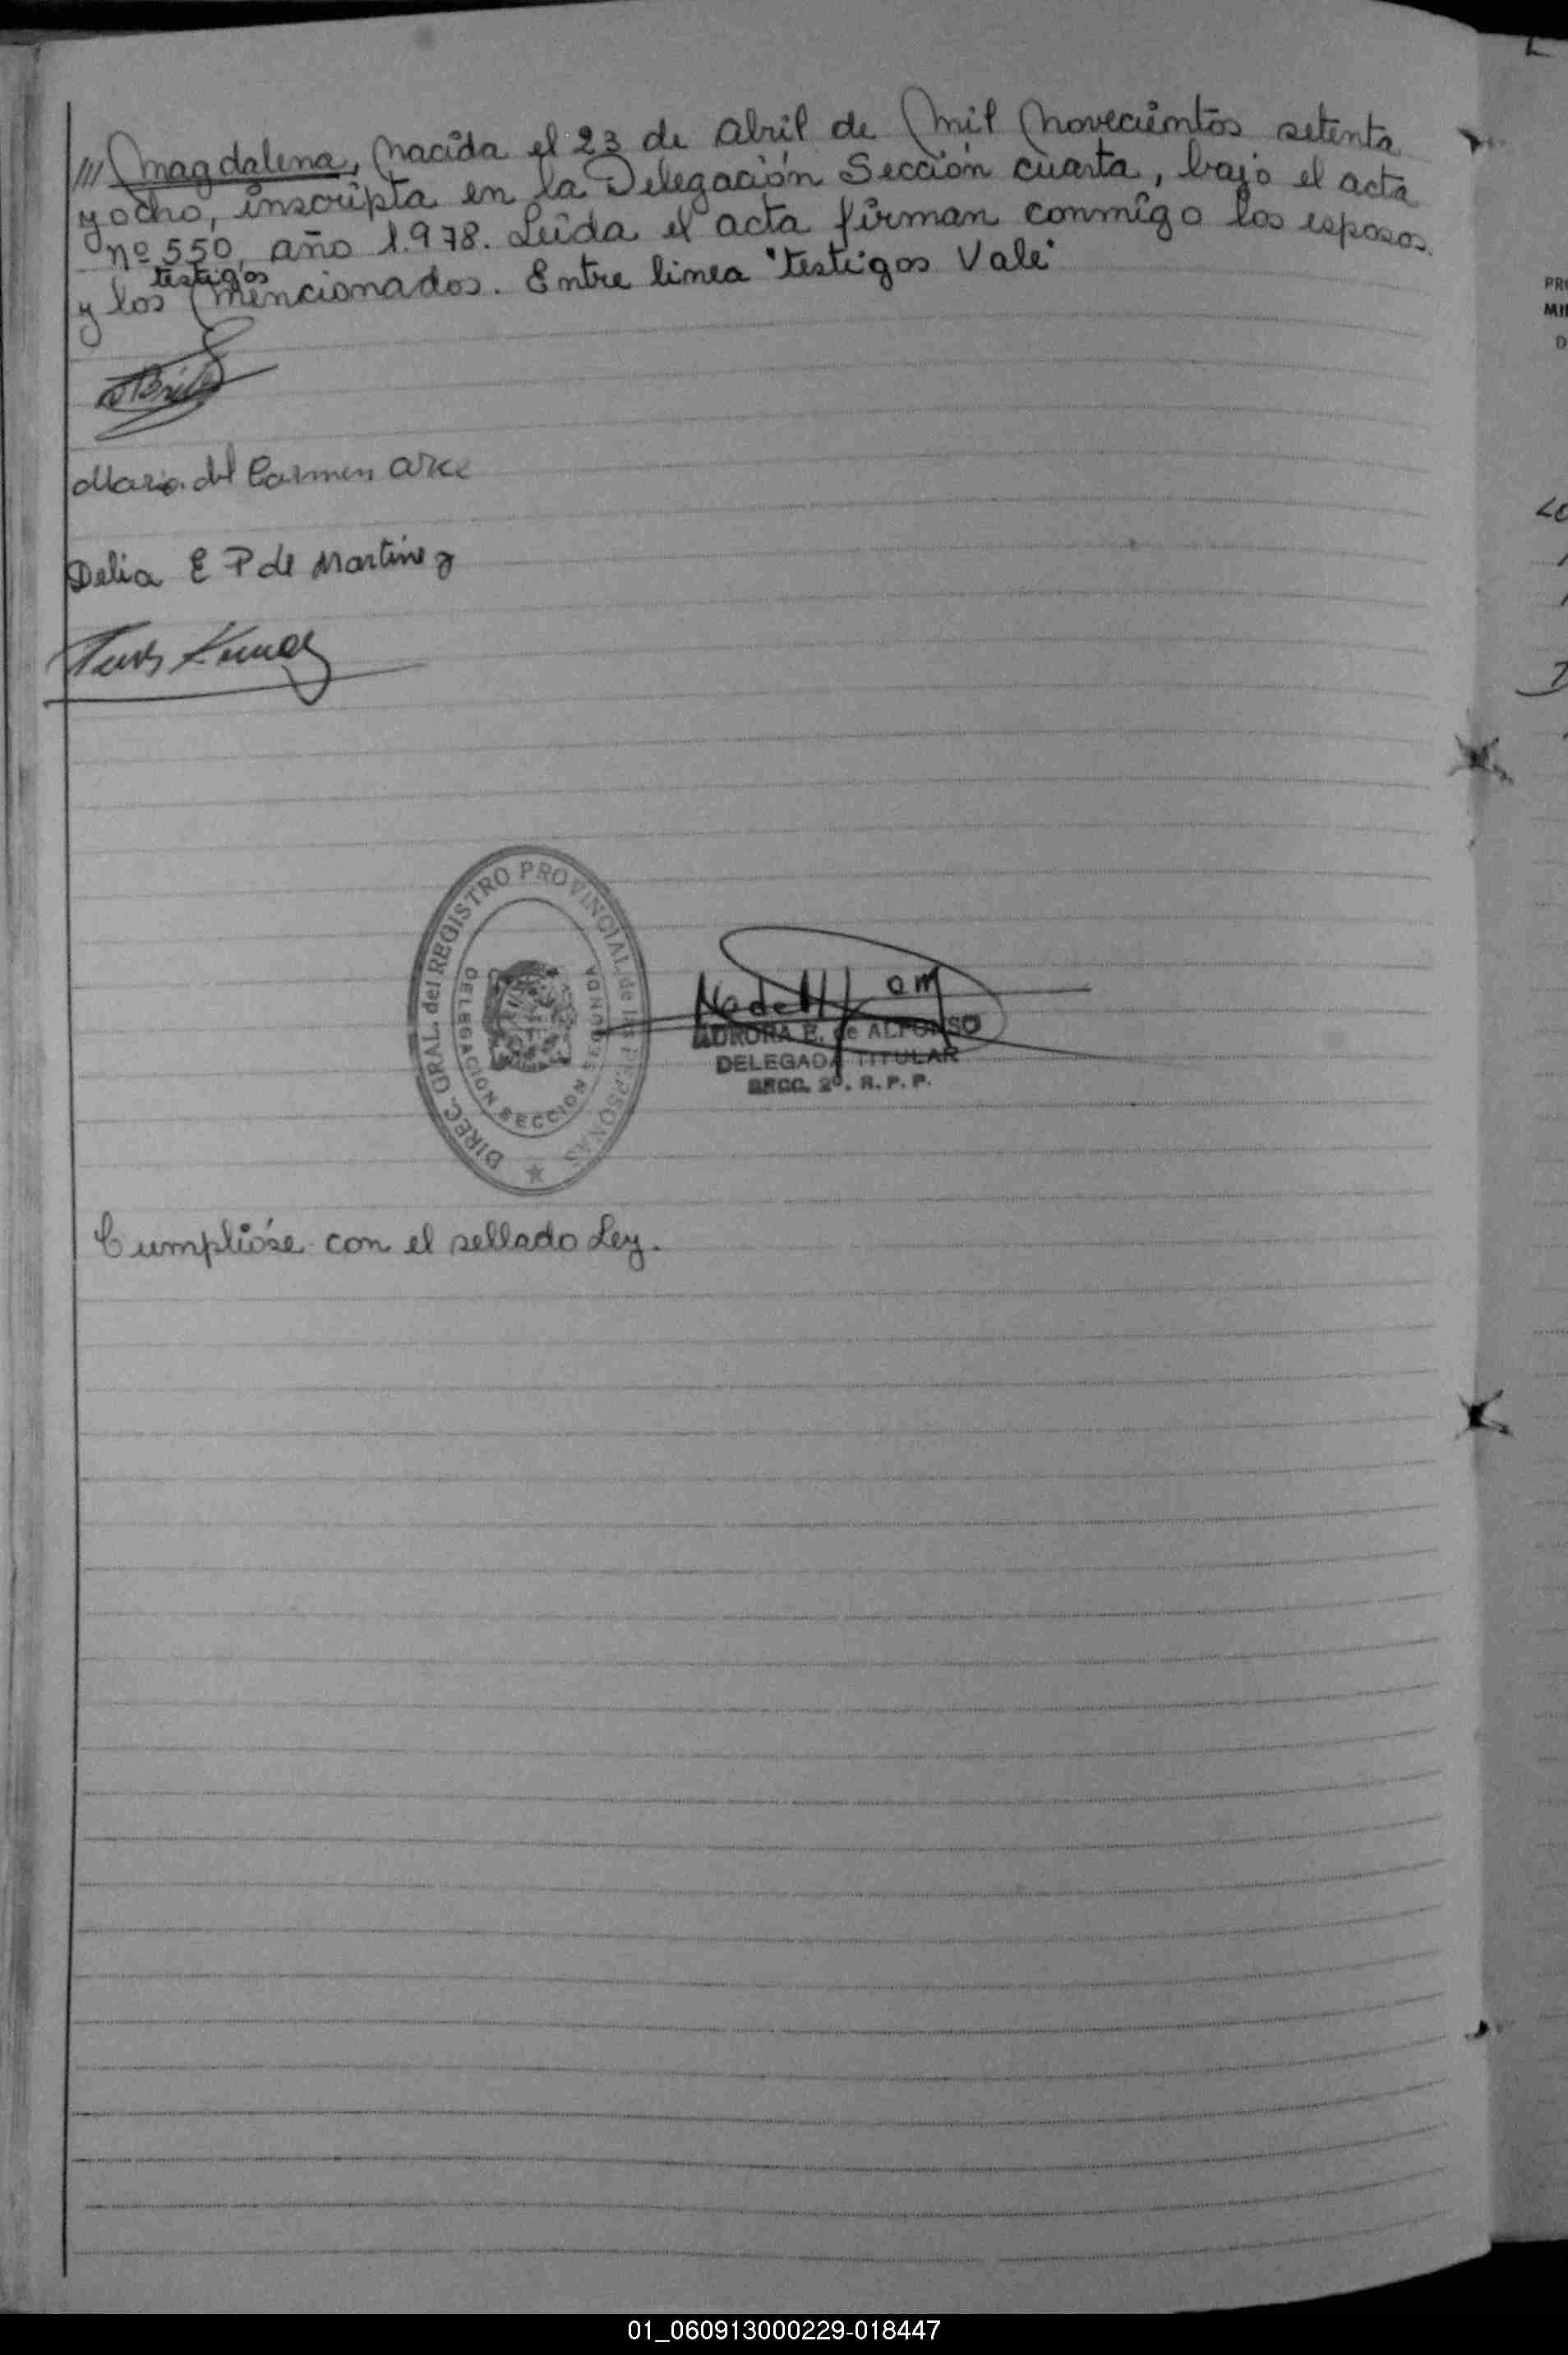 /// Magdalena, Nacida el 23 de Abril de Mil Novecientos setenta
y ocho, inscripta en la Delegación Sección cuarta, bajo el acta
nº 550, año 1.978. Leída el acta firman conmigo los esposos
testigos
y los mencionados. Entre linea "testigos Vale"
Maria del Carmen Arce
Delia E P de Martinez
DIREC. GRAL. del REGISTRO PROVINCIAL de las PERSONAS
DELEGACION SECCION SEGUNDA
AURORA E. de ALFONSO
DELEGADA TITULAR
SECC. 2º. R. P. P.
Cumplióse con el sellado Ley.
PR
MI
D
01_060913000229-018447